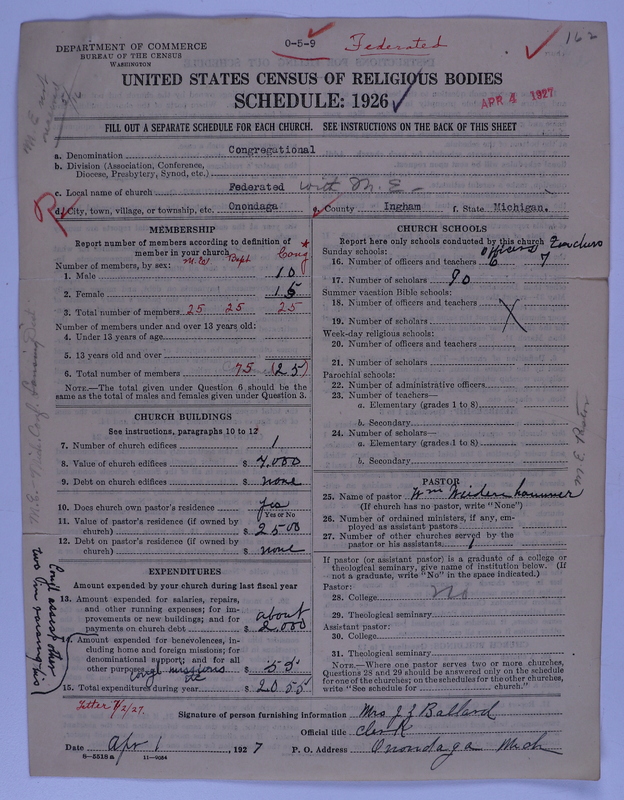 DEPARTMENT OF COMMERCE
BUREAU OF THE CENSUS
WASHINGTON
0-5-9
Federated
162
UNITED STATES CENSUS OF RELIGIOUS BODIES
SCHEDULE: 1926
APR 4 1927
FILL OUT A SEPARATE SCHEDULE FOR EACH CHURCH. SEE INSTRUCTIONS ON THE BACK OF THIS SHEET
a. Denomination Congregational
b. Division (Association, Conference,
Diocese, Presbytery, Synod, etc.)
c. Local name of church Federated with M. E.
d. City, town, village, or township, etc. Onondaga e. County Ingham f. State Michigan.
MEMBERSHIP
Report number of members according to definition of
member in your church
Number of members, by sex: M.E. Bapt Cong
1. Male 10
2. Female 15
3. Total number of members 25 25 25
Number of members under and over 13 years old:
4. Under 13 years of age
5. 13 years old and over
6. Total number of members 75 (25)
NOTE.—The total given under Question 6 should be the
same as the total of males and females given under Question 3.
CHURCH BUILDINGS
See instructions, paragraphs 10 to 12
7. Number of church edifices 1
8. Value of church edifices $ 7,000
9. Debt on church edifices $ none
10. Does church own pastor's residence yes
Yes or No
11. Value of pastor's residence (if owned by
church) $ 2500
12. Debt on pastor's residence (if owned by
church) $ none
EXPENDITURES
Amount expended by your church during last fiscal year
13. Amount expended for salaries, repairs,
and other running expenses; for im-
provements or new buildings; and for
payments on church debt $ about 2,000
14. Amount expended for benevolences, in-
cluding home and foreign missions; for
denominational support; and for all
other purposes $ 55
Congl missions etc
15. Total expenditures during year $ 2055
CHURCH SCHOOLS
Report here only schools conducted by this church
Sunday schools: officers Teachers
16. Number of officers and teachers 6 7
17. Number of scholars 90
Summer vacation Bible schools:
18. Number of officers and teachers
19. Number of scholars
Week-day religious schools:
20. Number of officers and teachers
21. Number of scholars
Parochial schools:
22. Number of administrative officers
23. Number of teachers—
a. Elementary (grades 1 to 8)
b. Secondary
24. Number of scholars—
a. Elementary (grades 1 to 8)
b. Secondary
PASTOR
25. Name of pastor Wm
(If church has no pastor, write "None")
26. Number of ordained ministers, if any, em-
ployed as assistant pastors
27. Number of other churches served by the
pastor or his assistants 1
If pastor (or assistant pastor) is a graduate of a college or
theological seminary, give name of institution below. (If
not a graduate, write "No" in the space indicated.)
Pastor:
28. College No
29. Theological seminary
Assistant pastor:
30. College
31. Theological seminary
NOTE.—Where one pastor serves two or more churches,
Questions 28 and 29 should be answered only on the schedule
for one of the churches; on the schedules for the other churches,
write "See schedule for church."
M E Pastor
Letter 7/2/27.
Signature of person furnishing information Mrs J J Ballard
Official title Clerk
Date Apr 1, 1927 P. O. Address Onondaga Mich
8-5518a 11-9064